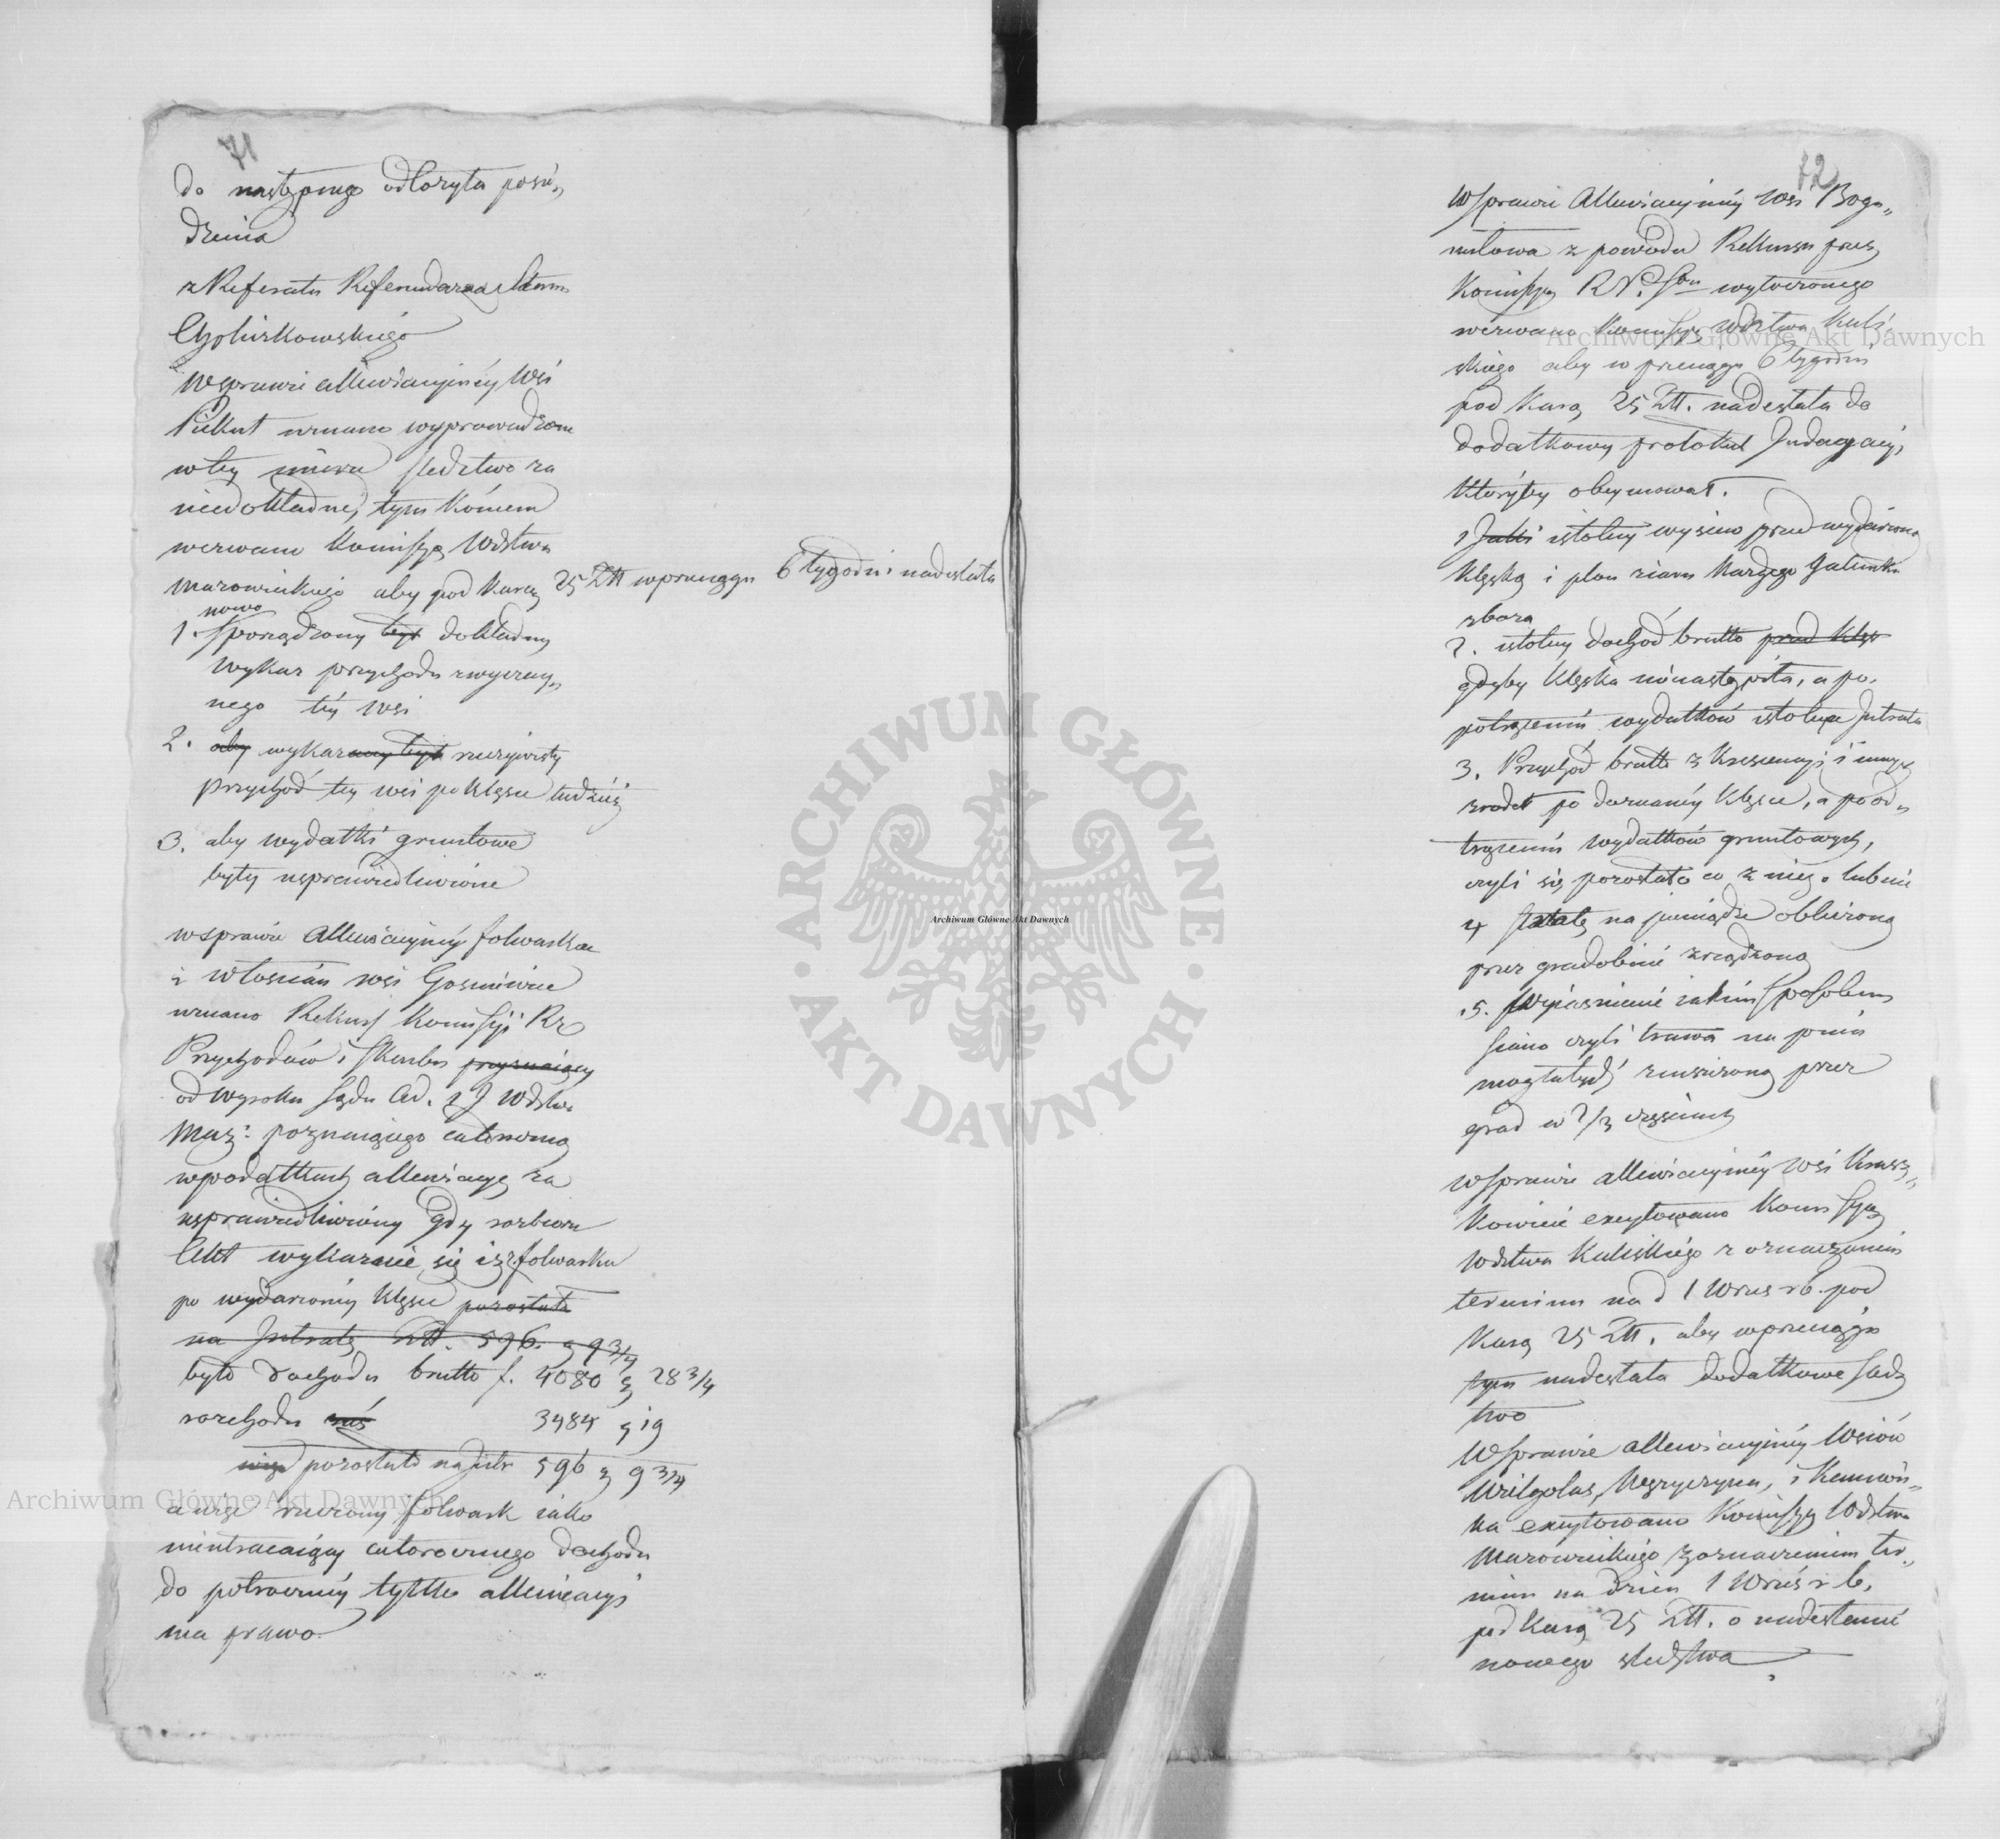 71
do następnego odłożyła posie„
dzenia
z Referatu Referendarza Stanu
W sprawie allewiacyiney wsi
Piekut uznano wyprowadzone
w tey mierze śledztwo za
niedokładne, tym końcem
wezwano Kommissyą Wdztwa
Mazowieckiego aby pod karą 25 Złl w przeciągu 6 tygodni nadesłała
nowo
1. sporządzony był dokładny
wykaz przychodu zwyczay„
nego tey wsi
2. aby wykazany był rzeczywisty
przychód tey wsi po klęsce tudzież
3. aby wydatki gruntowe
były usprawiedliwione
w sprawie allewiacyiney folwarku
i włościan wsi Gosniewice
uznano Rekurs Kommissyi Rz
Przychodów i Skarbu przyznaiący
od wyroku Sądu Ad. 1 J Wdztwa
Maz: poznaiącego całoroczną
w podatkach allewiacyę za
usprawiedliwiony gdy z rozbioru
Akt wykazuie się iż z folwarku
po wydarzoney klęsce pozostało
na Intratę Złl. 596. g 9 3/4
było dochodu brutto f. 4080 g 28 3/4
rozchodu zaś 3484 g 19
więc pozostało na Intr 596 g 9 3/4
a więc rzeczony folwark iako
nieutracaiący całorocznego dochodu
do potroczney tylko allewiacyi
ma prawo.
72
W sprawie Allewiacyiney wsi Bogu„
miłowa z powodu Rekursu przez
Kommissyą R P. i Sbu wytoczonego
wezwano Kommissyą Wdztwa Kali„
skiego aby w przeciągu 6 tygodni
pod karą 25 Złl. nadesłała do
dodatkowy protokuł Indagacyi,
któryby obeymował.
1 Jaki istotny wysiew przed wydarzoną
klęską i plon ziarn każdego gatunku
zboża
2. istotny dochód brutto przed klęs
gdyby klęska nie nastąpiła, a po
potrąceniu wydatków istotną Intratę
3. Przychód brutto z Krescencyi i innych
źrodeł po doznaney klęsce, a po od„
trąceniu wydatków gruntowych,
czyli się pozostało co z niego lub nie
4 stratę na pieniądze obliczoną
przez gradobicie zrządzoną
5. wyiaśnienie iakim sposobem
siano czyli trawa na pniu
mogła bydź zniszczoną przez
grad w 2/3 częściach
w sprawie allewiacyiney wsi Krusz„
kowicie excytowano Kommissyą
Wdztwa Kaliskiego z oznaczeniem
terminu na d 1 Wrześ r b. pod
karą 25 Złl. aby w przeciągu
tym nadesłała dodatkowe śledz
two
W sprawie allewiacyiney wsiów
Wilgolas, Węgryczyna, i Kamion„
ka excytowano Kommissyą Wdztwa
Mazowieckiego z oznaczeniem ter„
minu na dzień 1 Wrześ r b,
pod karą 25 Złl. o nadesłanie
nowego śledztwa
Archiwum Główne Akt Dawnych
Archiwum Główne Akt Dawnych
Archiwum Główne Akt Dawnych
ARCHIWUM GŁÓWNE · AKT DAWNYCH ·